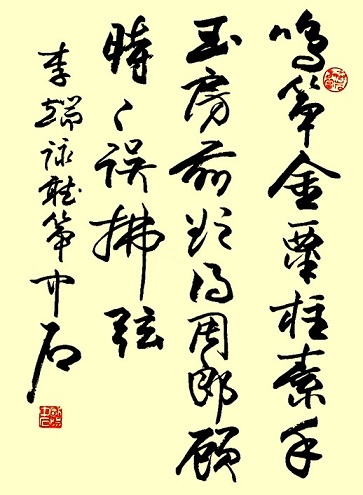 鸣筝金粟柱素手
玉房前欲得周郎顾
時々误拂弦
李端詠聽筝中石